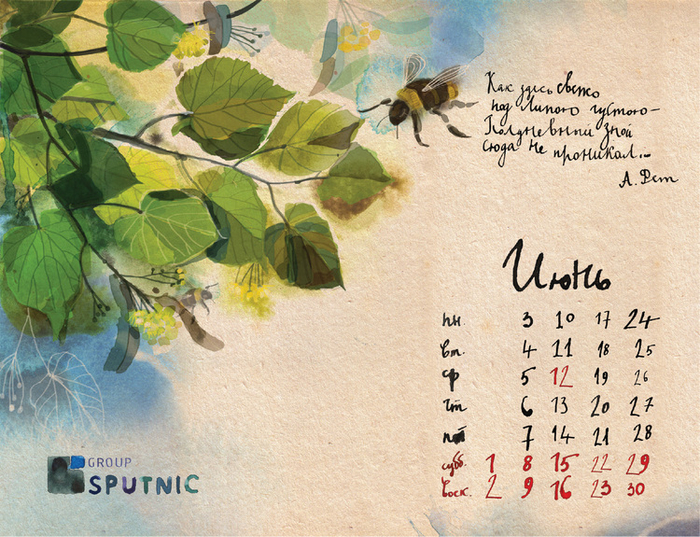 Как здесь свежо
под липою густою—
Полдневный зной
сюда не проникал...
А. Фет
Июнь
пн. 3 10 17 24
вт. 4 11 18 25
ср 5 12 19 26
чт 6 13 20 27
пт 7 14 21 28
субб. 1 8 15 22 29
воск. 2 9 16 23 30
GROUP
SPUTNIC